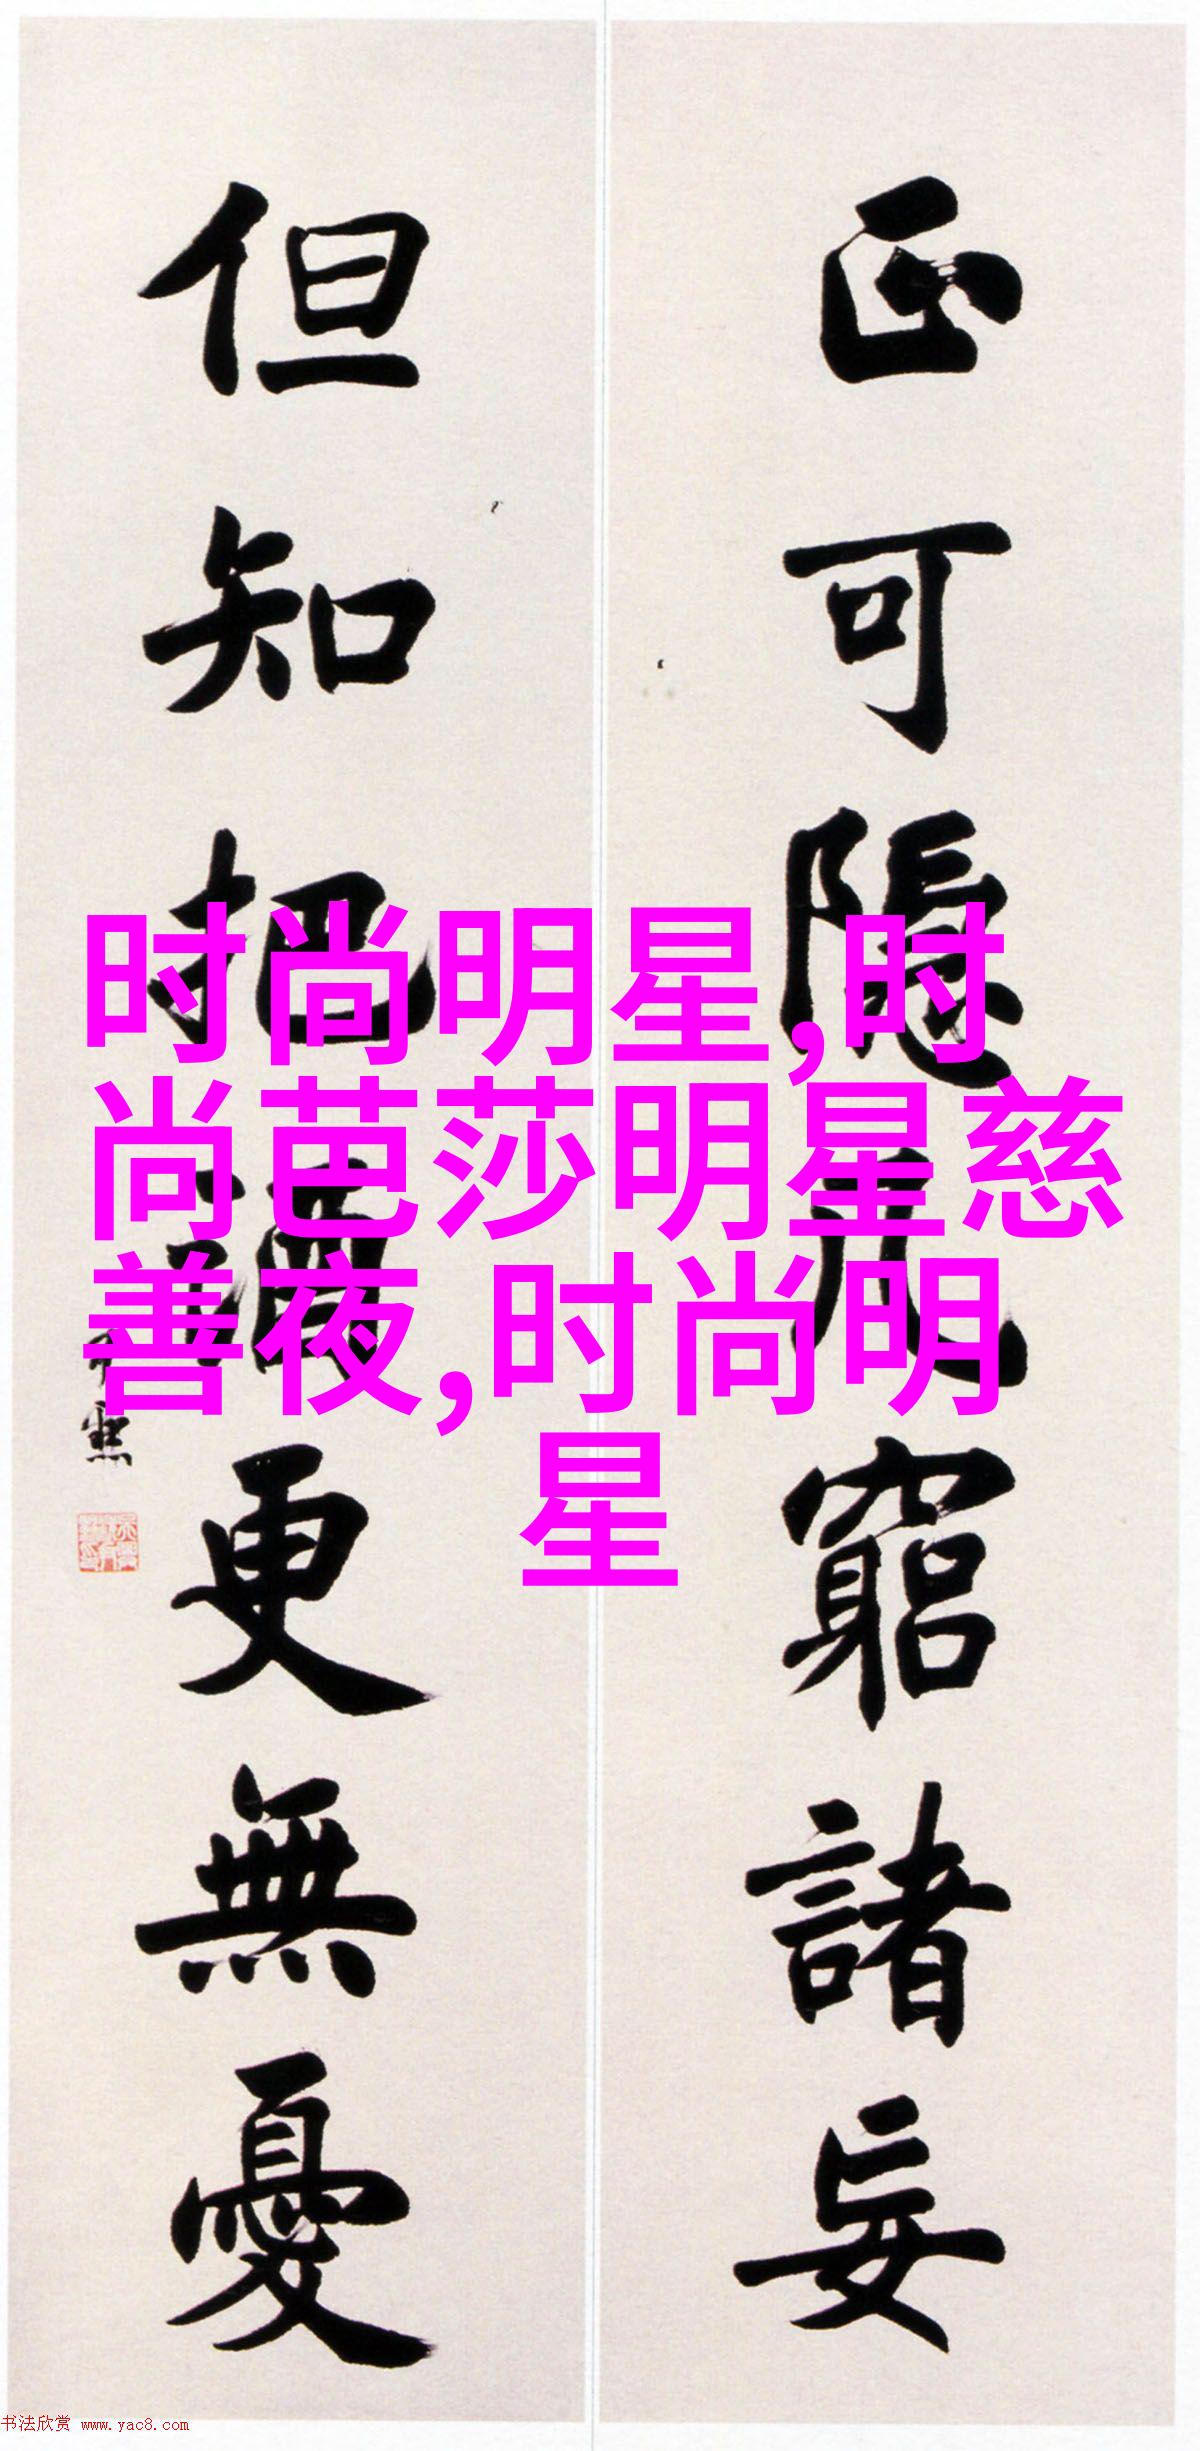 正可隱几窮諸妄
但知把酒更無憂
时尚明星,时
尚芭莎明星慈
善夜,时尚明
星
书法欣赏 www.yac8.com